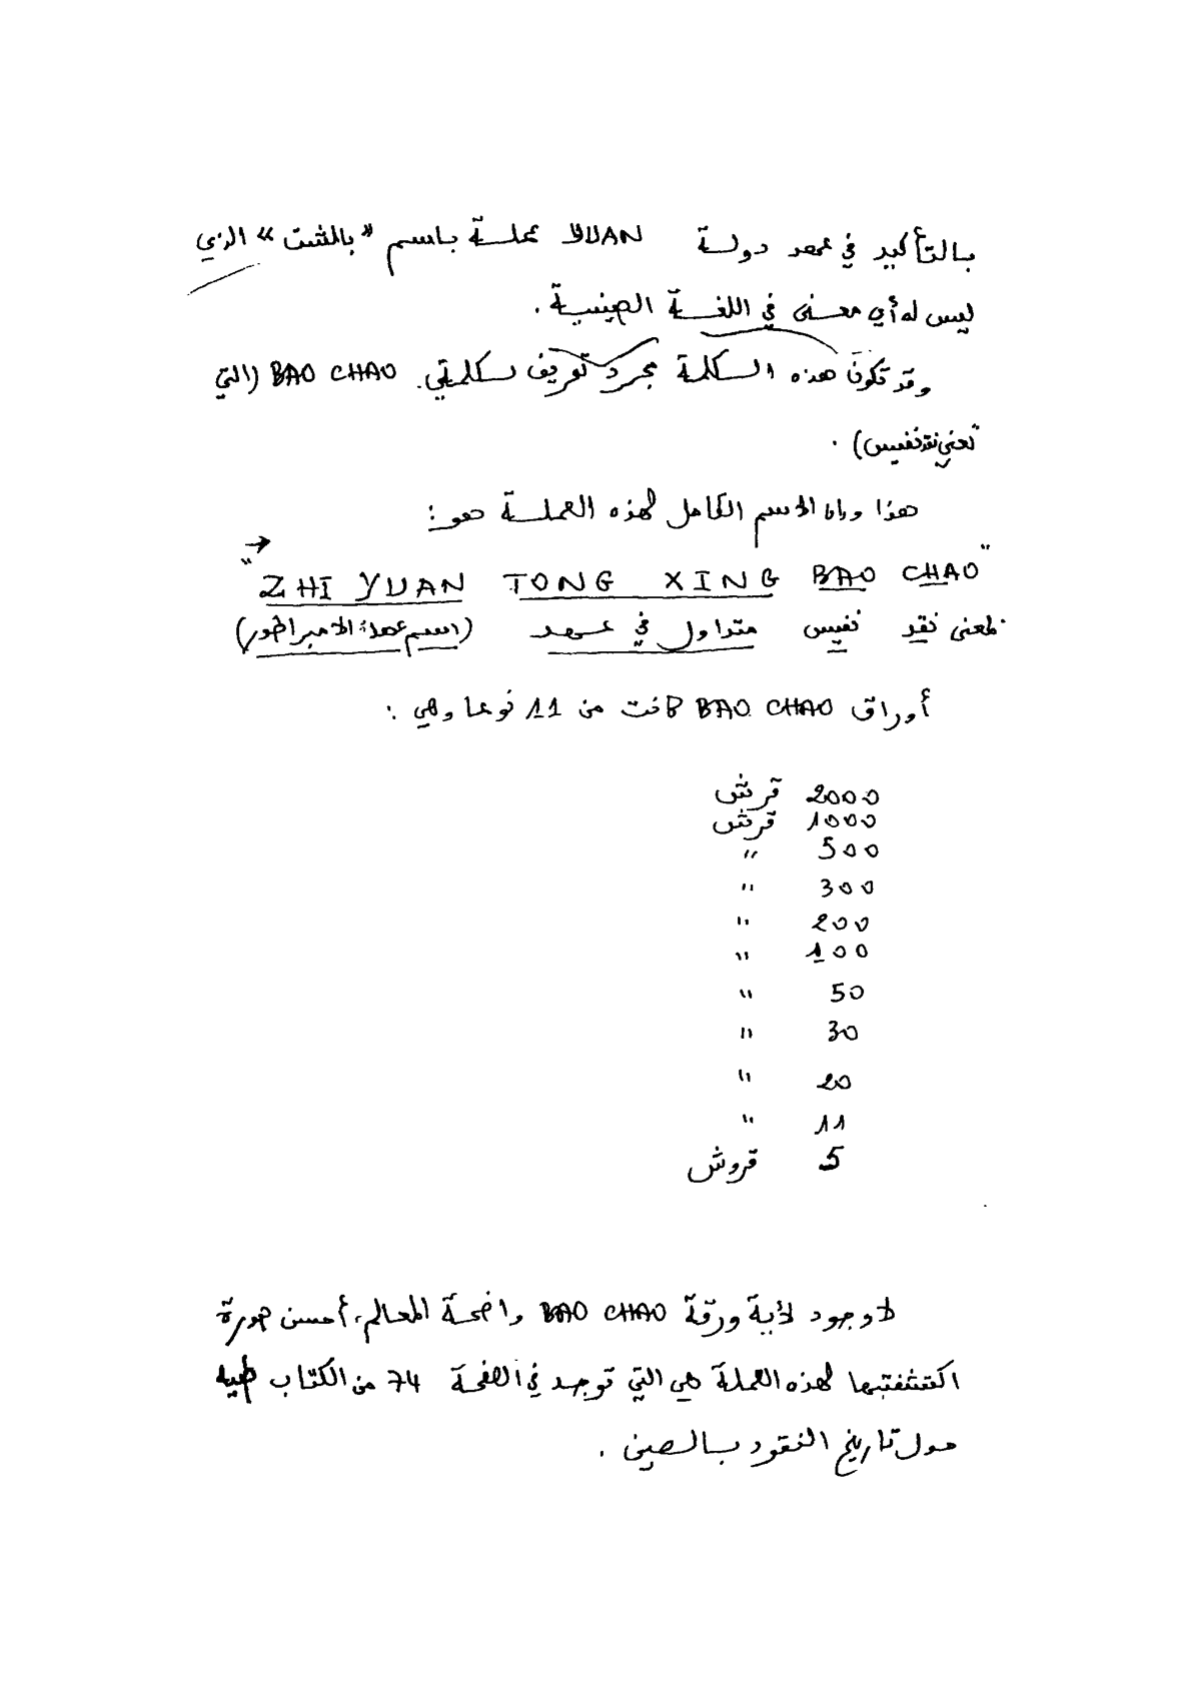 بالتأكيد في عهد دولة YUAN عملة باسم "بالشت" الذي
ليس له أي معنى في اللغة الصينية .
وقد تكون هذه الكلمة مجرد تعريف لكلمتي BAO CHAO (التي
تعني نقد نفيس) .
هذا وان الاسم الكامل لهذه العملة هو :
"ZHI YUAN TONG XING BAO CHAO"
لمعنى نقد نفيس متداول في عهد (اسم عهد الامبراطور)
أوراق BAO CHAO كانت من 11 نوعا وهي :
2000 قرش
1000 قرش
500 "
300 "
200 "
100 "
50 "
30 "
20 "
11 "
5 قروش
لا وجود لأية ورقة BAO CHAO واضحة المعالم، أحسن صورة
اكتشفتها لهذه العملة هي التي توجد في الصفحة 74 من الكتاب طيه
حول تاريخ النقود بالصين .